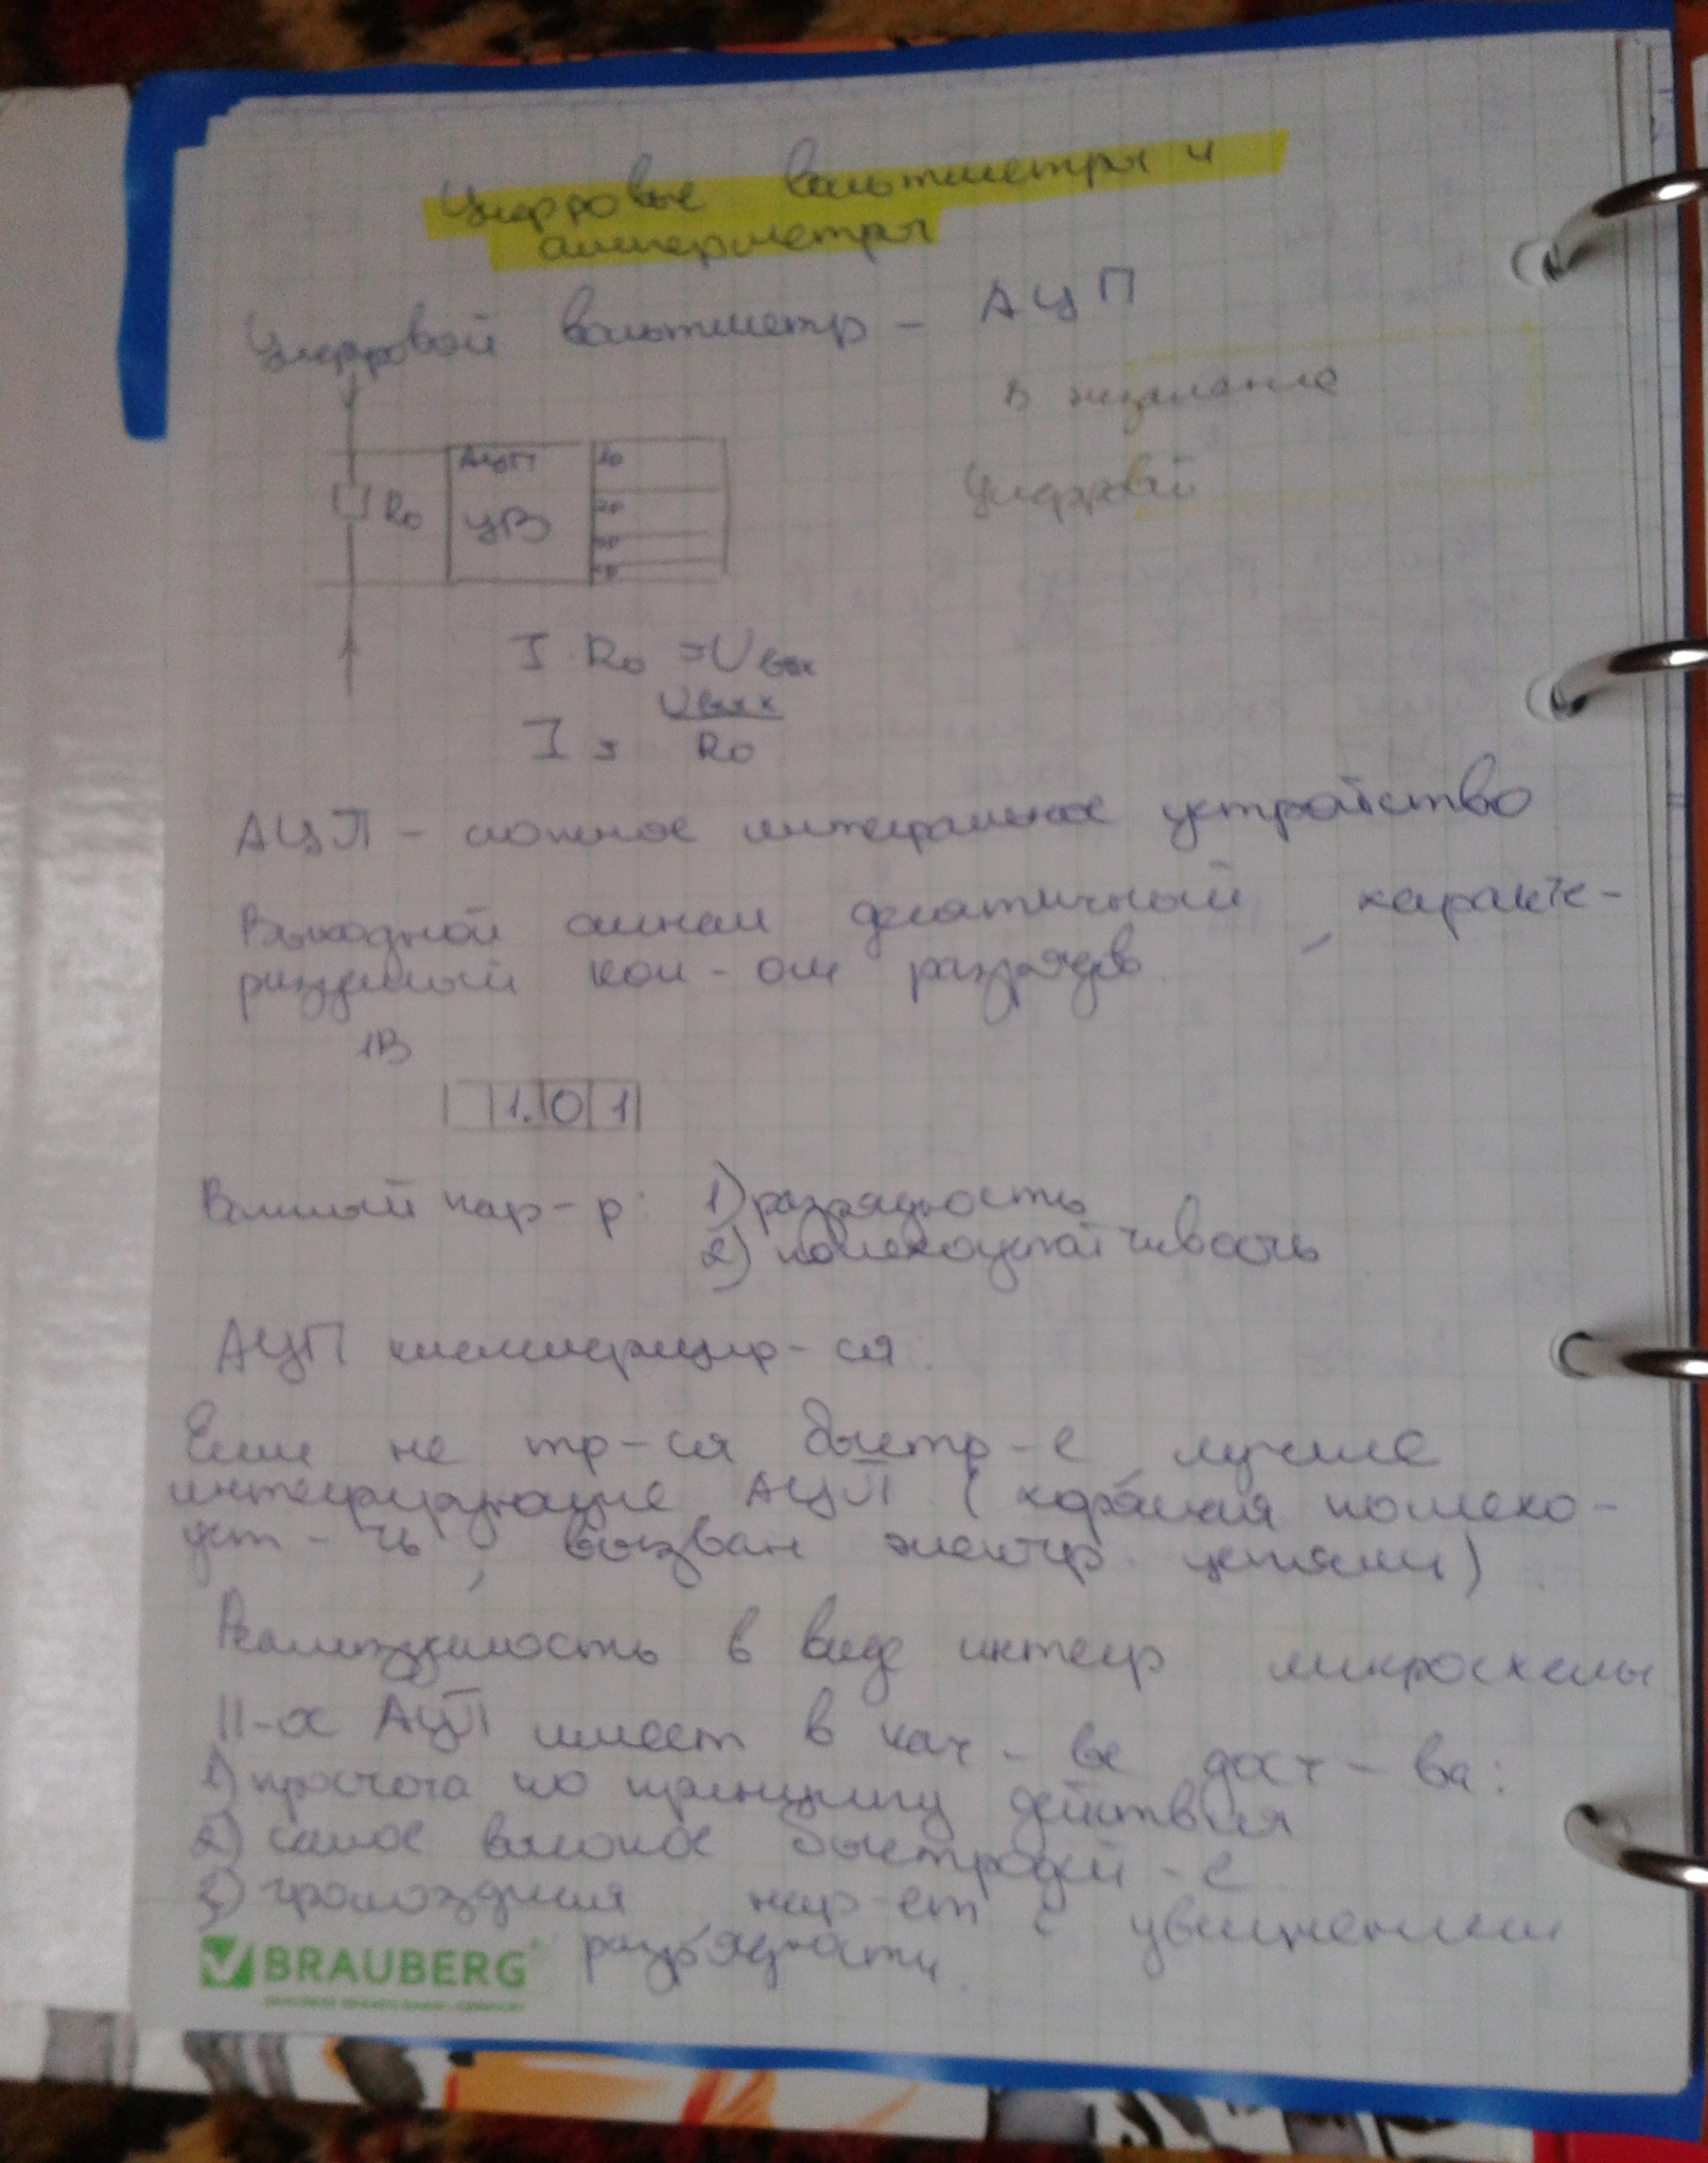 Цифровые вольтметры и
амперметры
Цифровой вольтметр – АЦП
в
Цифровой
АЦП
ЦВ
R₀
I · R₀ = Uвых
I = Uвых / R₀
АЦП – сложное интегральное устройство
Выходной сигнал десятичный, характе-
ризуемый кол-ом разрядов.
1В
1.01
Важный пар-р: 1) разрядность
2) помехоустойчивость
АЦП классифицир-ся:
Если не тр-ся быстр-е, лучше
интегрирующие АЦП (хорошая помехо-
уст-ть, вызван электр. цепями)
Реализуемость в виде интегр микросхемы
II-х АЦП имеет в кач-ве дост-ва:
1) простота по принципу действия
2) самое высокое быстродей-е
3) громоздкая с увеличением
разрядности.
BRAUBERG